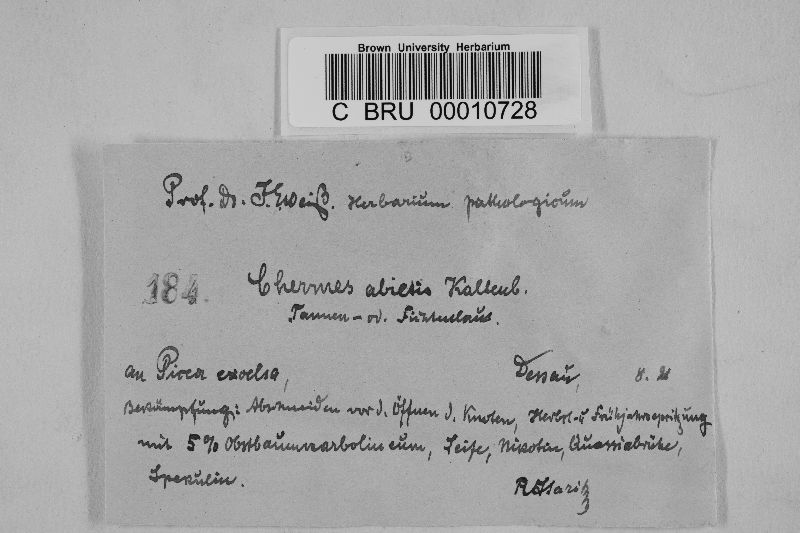 Brown University Herbarium
C BRU 00010728
Prof. Dr. J. E. Weiß. Herbarium pathologicum
184. Chermes abietis Kaltenb.
Tannen- od. Fichtenlaus.
an Picea excelsa, Dessau, 8. 21
Bekämpfung: Abschneiden vor d. Öffnen d. Knoten, Herbst- u Frühjahrsspritzung
mit 5% Obstbaumcarbolineum, Seife, Nikotin, Quassiabrühe,
Spekulin. R Staritz